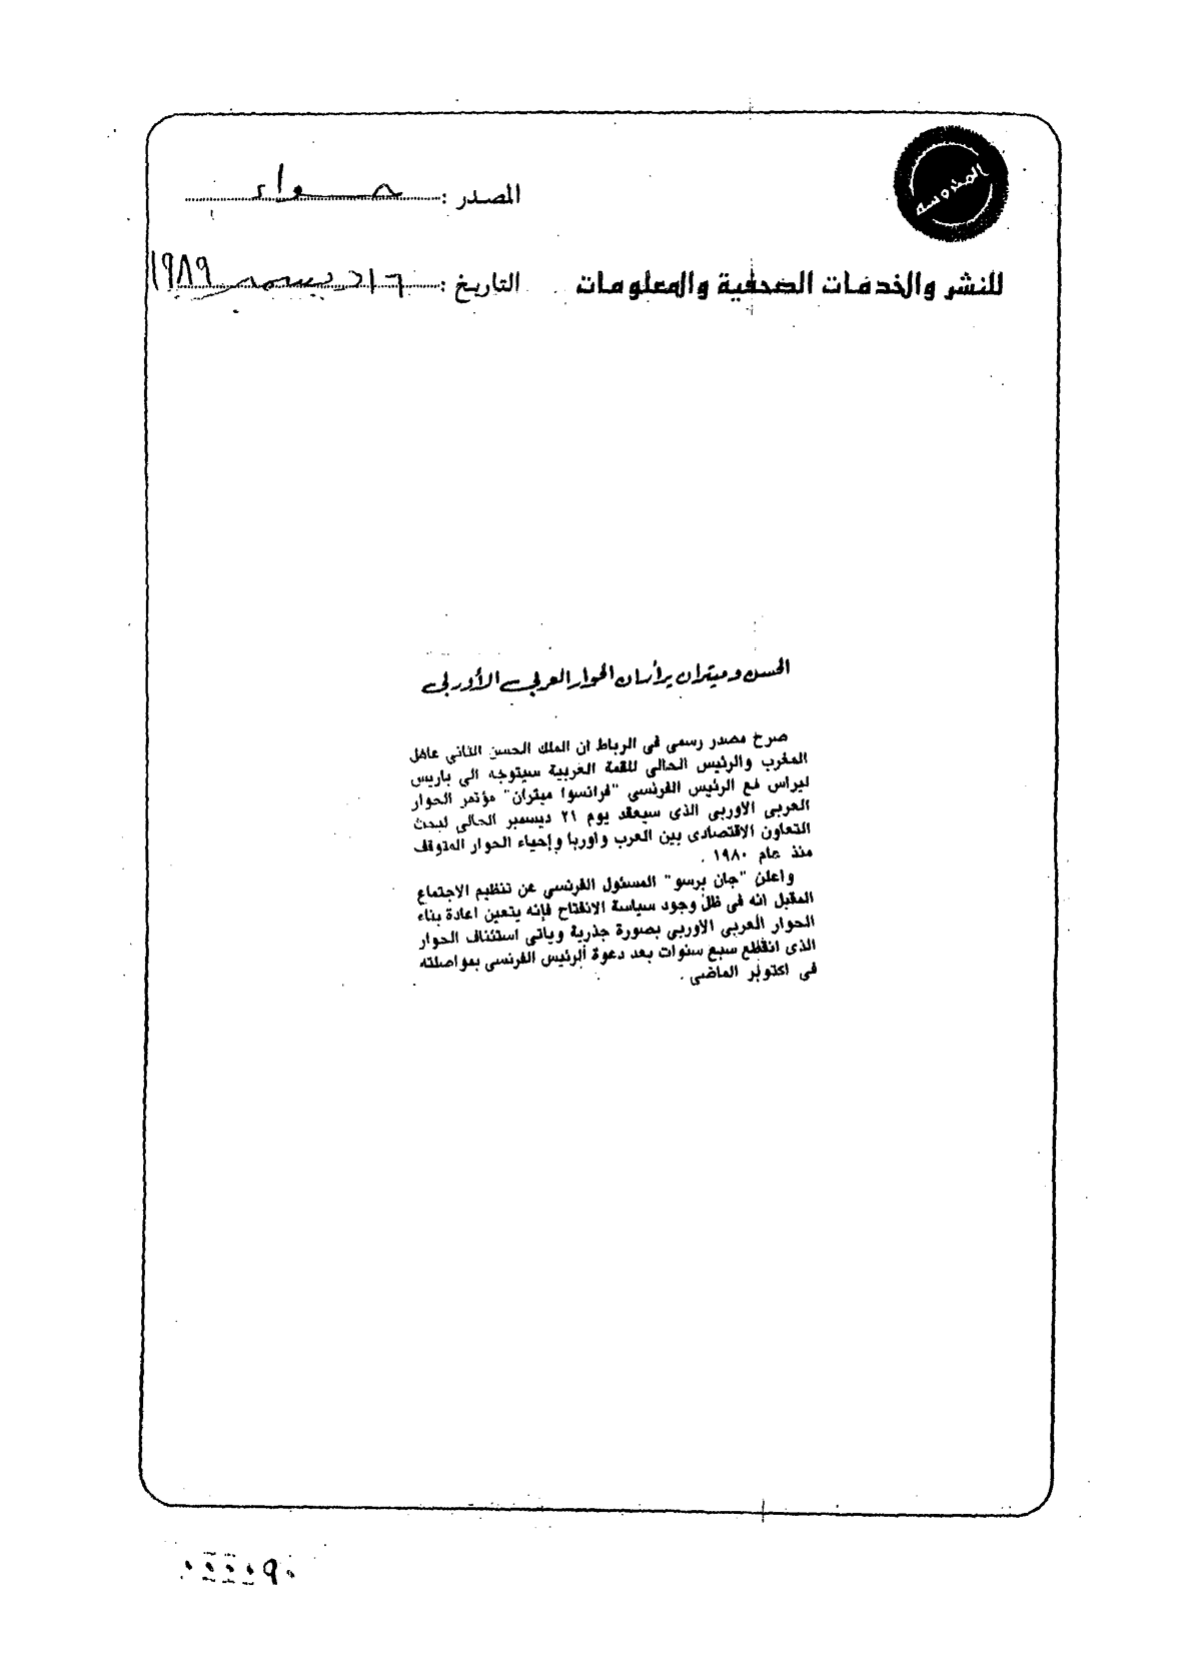 المحروسه
المصدر : حواء
للنشر والخدمات الصحفية والمعلومات
التاريخ : ١٦ ديسمبر ١٩٨٩
الحسن وميتران يرأسان الحوار العربى الأوربى
صرح مصدر رسمى فى الرباط ان الملك الحسن الثانى عاهل
المغرب والرئيس الحالى للقمة العربية سيتوجه الى باريس
ليراس مع الرئيس الفرنسي "فرانسوا ميتران" مؤتمر الحوار
العربى الاوربى الذى سيعقد يوم ٢١ ديسمبر الحالى لبحث
التعاون الاقتصادى بين العرب واوربا وإحياء الحوار المتوقف
منذ عام ١٩٨٠ .
واعلن "جان برسو" المسئول الفرنسى عن تنظيم الاجتماع
المقبل انه فى ظل وجود سياسة الانفتاح فإنه يتعين اعادة بناء
الحوار العربى الاوربى بصورة جذرية وياتى استئناف الحوار
الذى انقطع سبع سنوات بعد دعوة الرئيس الفرنسى بمواصلته
فى اكتوبر الماضى .